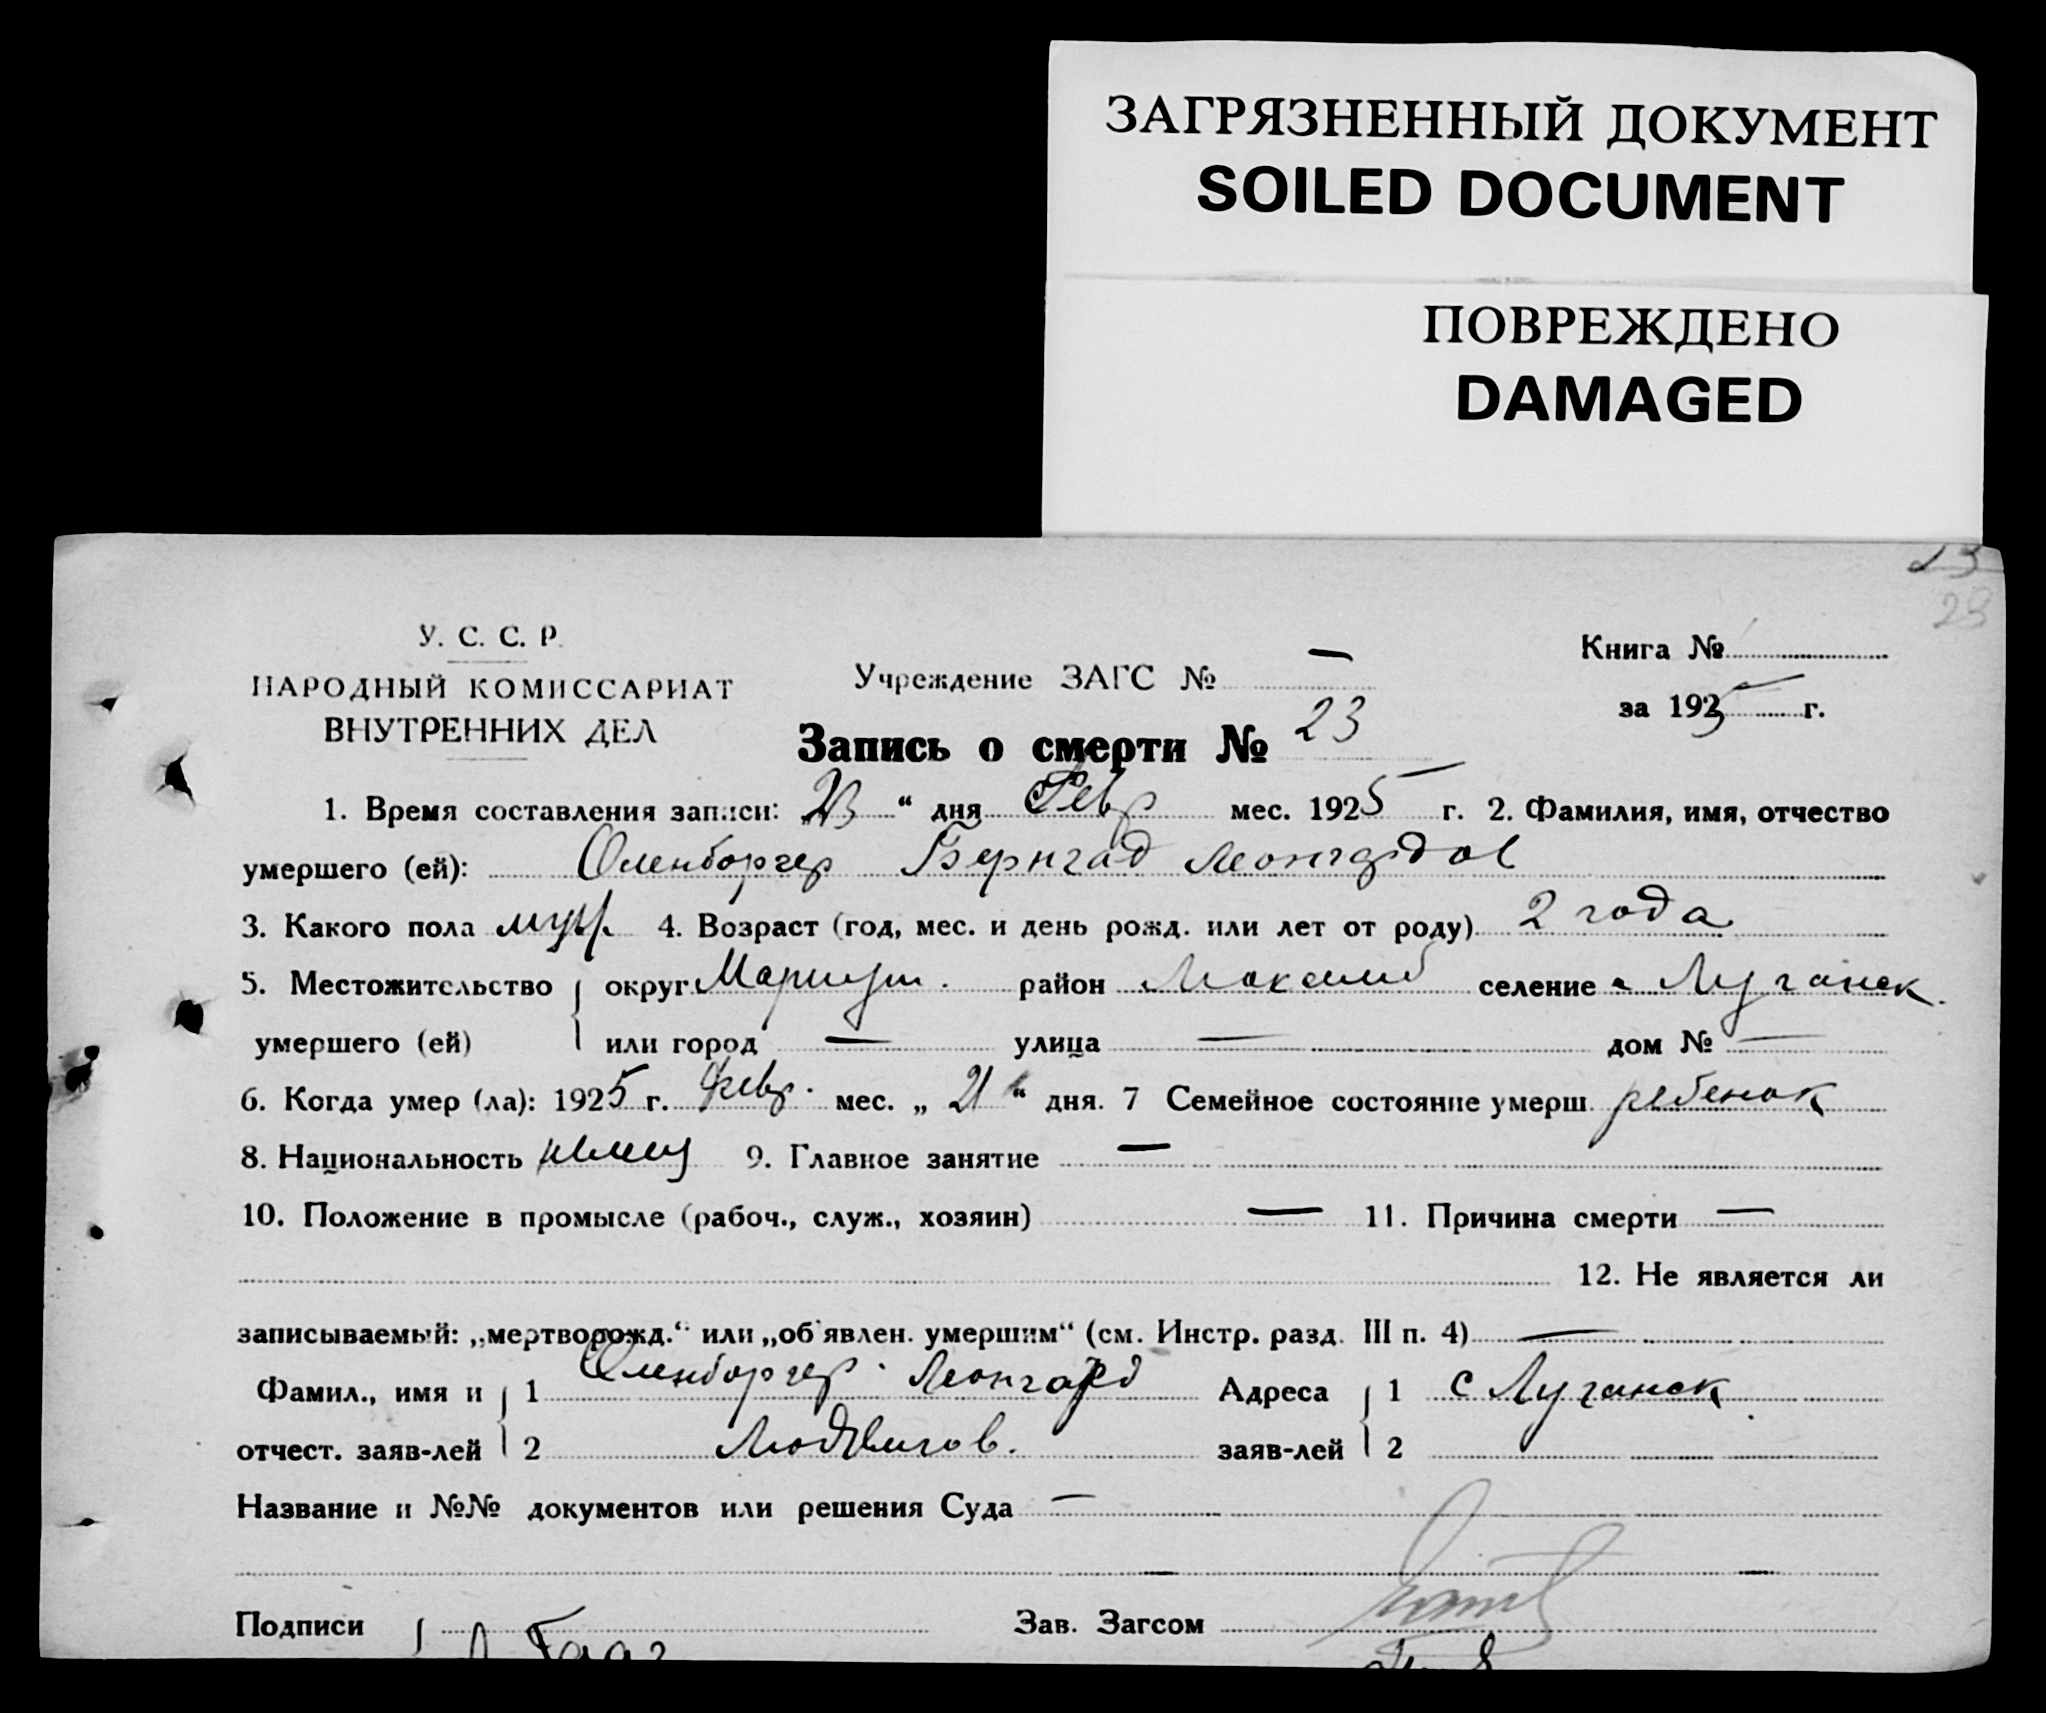 ЗАГРЯЗНЕННЫЙ ДОКУМЕНТ
SOILED DOCUMENT
ПОВРЕЖДЕНО
DAMAGED
23
23
У. С. С. Р.
НАРОДНЫЙ КОМИССАРИАТ
ВНУТРЕННИХ ДЕЛ
Учреждение ЗАГС № —
Книга №
за 1925 г.
Запись о смерти № 23
1. Время составления записи: „23“ дня Февр мес. 1925 г. 2. Фамилия, имя, отчество
умершего (ей): Оленборгер Бернгад Леонгардов
3. Какого пола муж. 4. Возраст (год, мес. и день рожд. или лет от роду) 2 года
5. Местожительство округ Мариуп. район селение с Луганск.
умершего (ей) или город — улица — дом № —
6. Когда умер (ла): 1925 г. Февр. мес. „21“ дня. 7 Семейное состояние умерш. ребенок
8. Национальность немец 9. Главное занятие —
10. Положение в промысле (рабоч., служ., хозяин) — 11. Причина смерти —
12. Не является ли
записываемый: „мертворожд.“ или „об'явлен. умершим“ (см. Инстр. разд. III п. 4) —
Фамил., имя и 1 Оленборгер Леонгард Адреса 1 с Луганск
отчест. заяв-лей 2 Людвигов. заяв-лей 2
Название и №№ документов или решения Суда —
Подписи Зав. Загсом